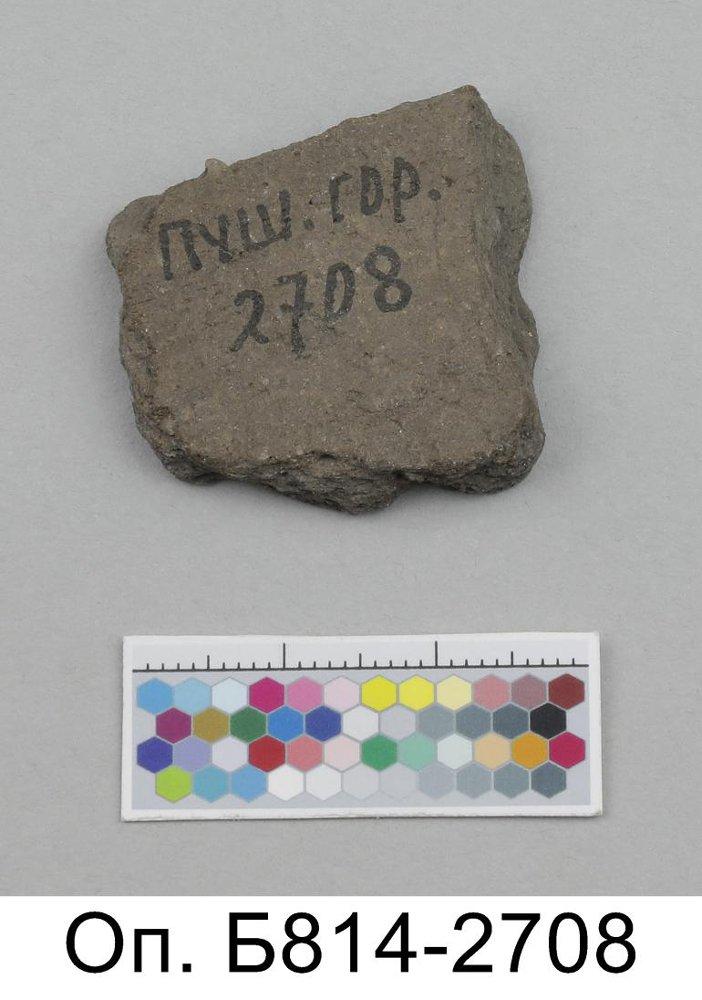 ПУШ. ГОР.
2708
Оп. Б814-2708